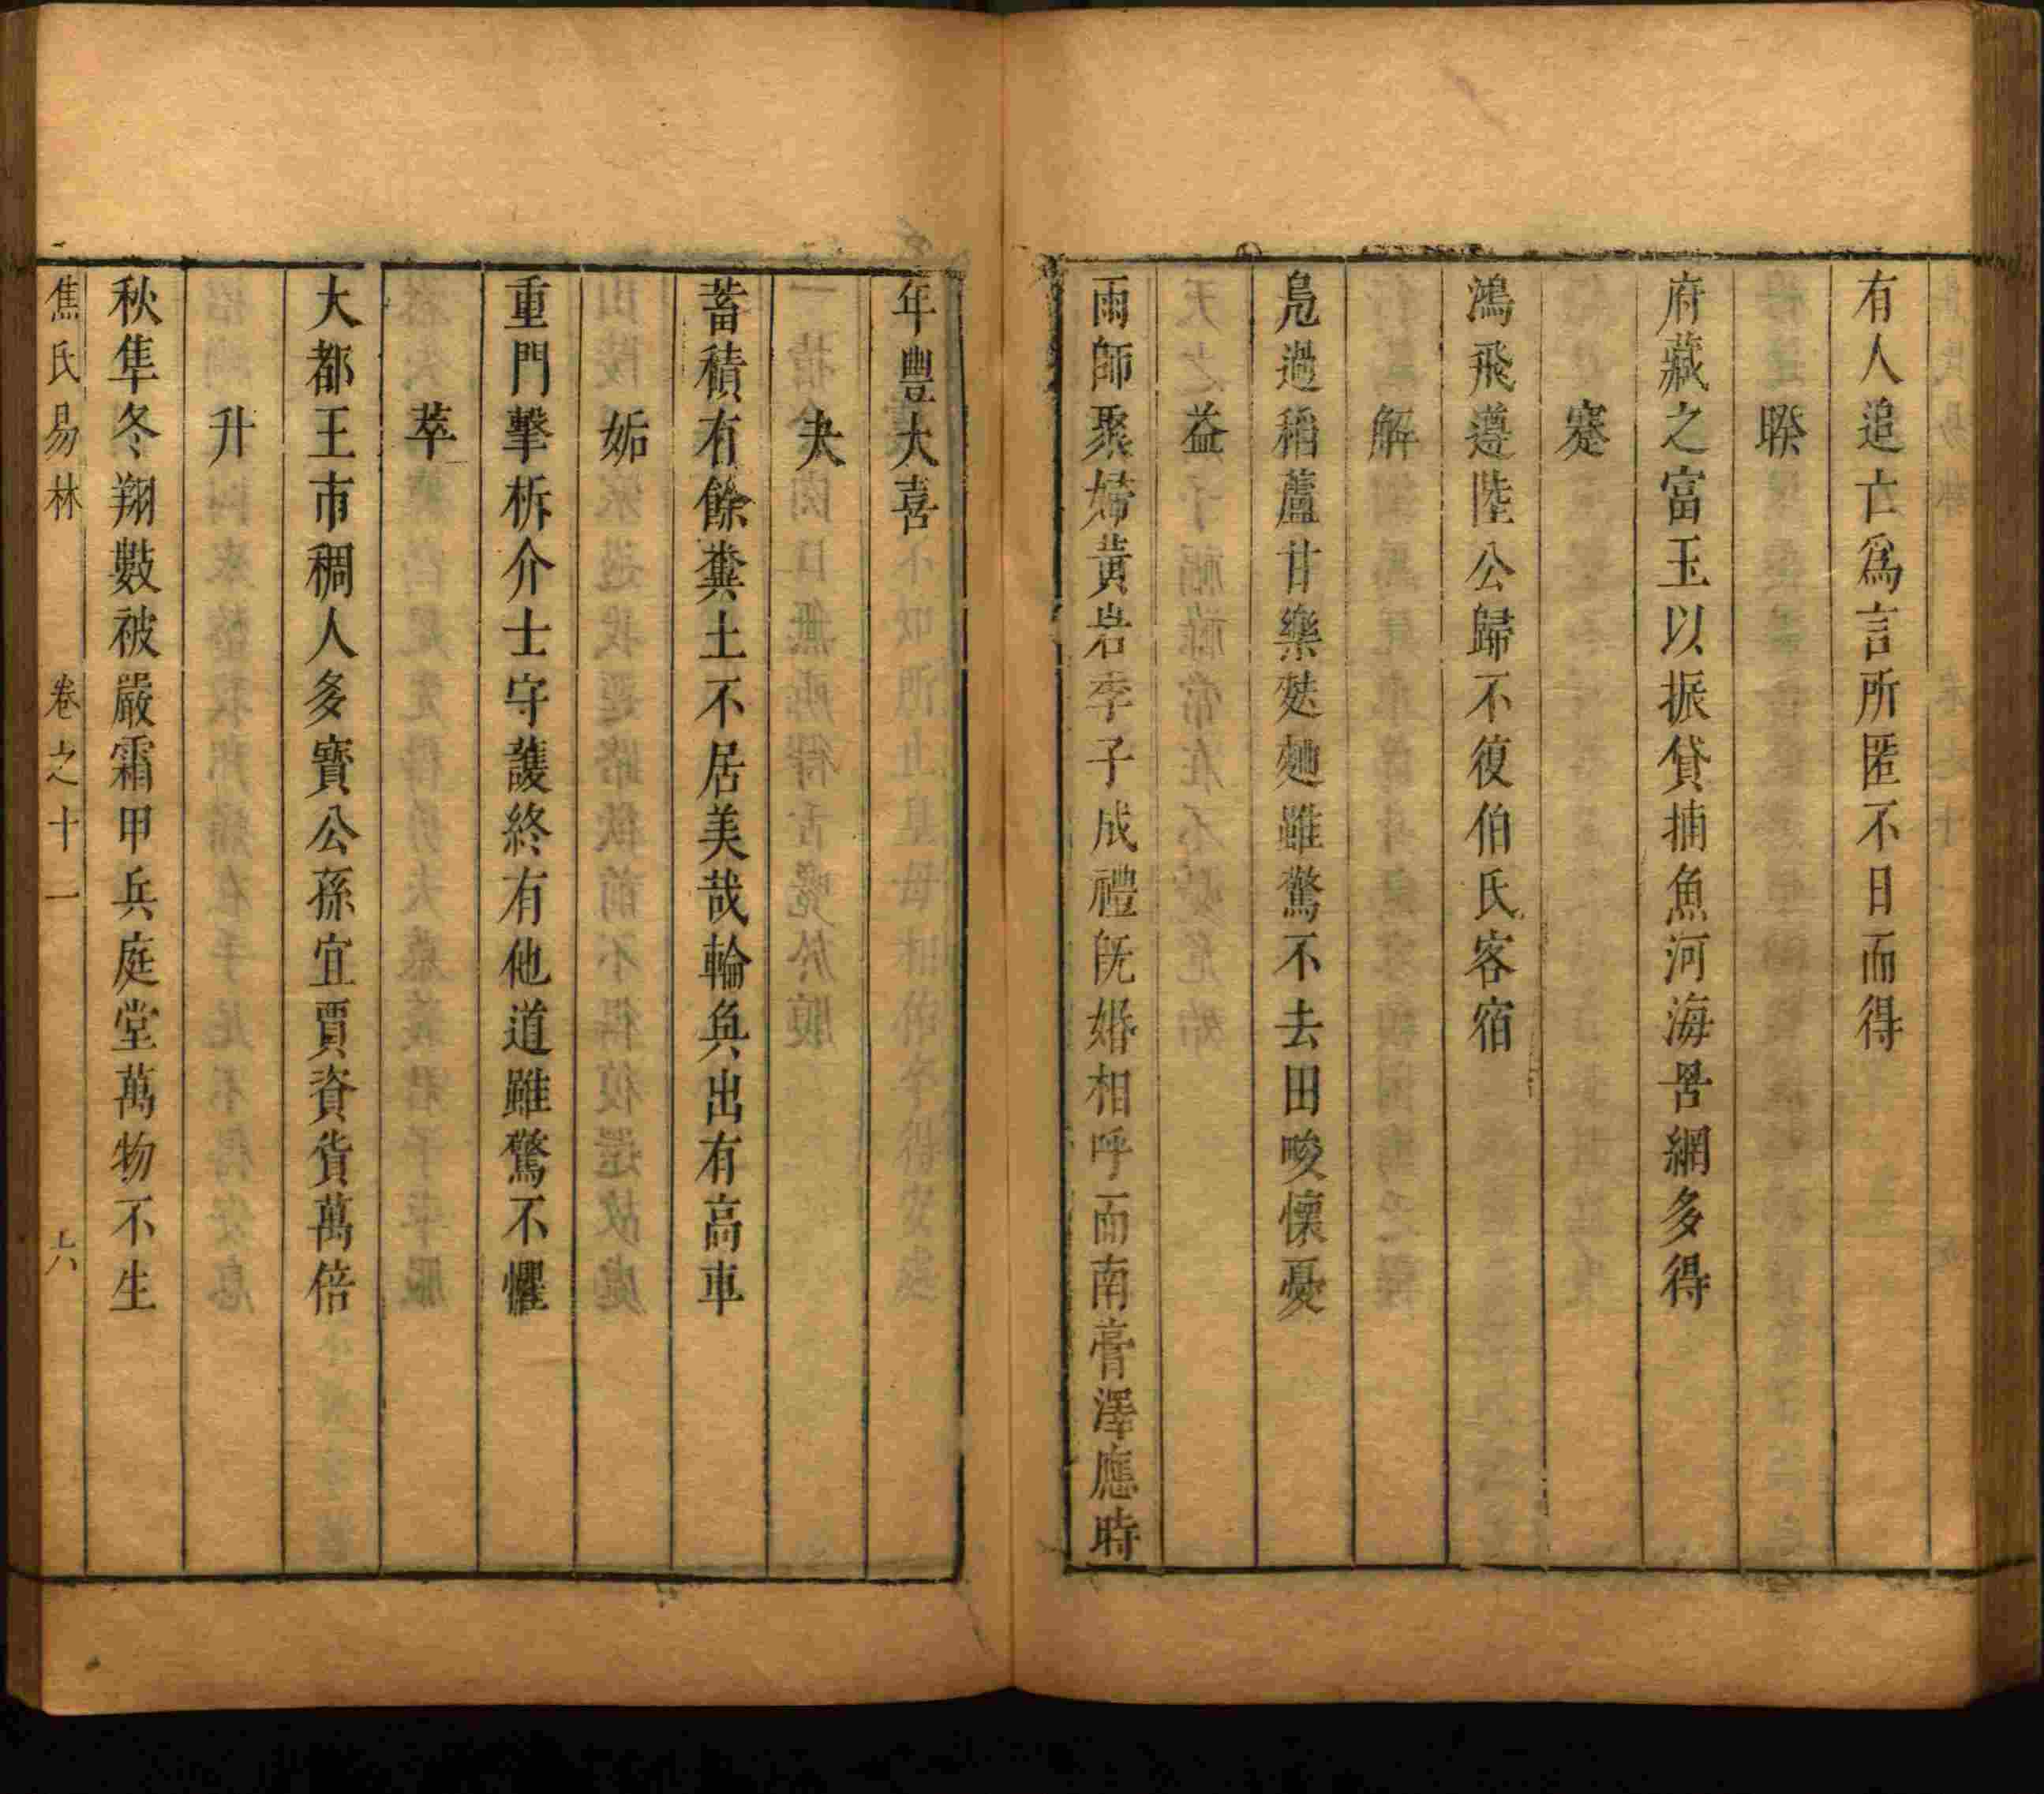 有人追亡爲言所匿不日而得
睽
府藏之富玉以振貸捕魚河海罟網多得
蹇
鴻飛遵陸公歸不復伯氏客宿
解
鳬過稻蘆甘樂𪍿麹雖驚不去田畯懷憂
益
雨師聚婦黃岩季子成禮旣婚相呼而南膏澤應時
年豐大喜
夬
蓄積有餘糞土不居美哉輪奐出有高車
姤
重門擊柝介士守護終有他道雖驚不懼
萃
大都王市稠人多寳公孫宜賈資貨萬倍
升
秋隼冬翔數被嚴霜甲兵庭堂萬物不生
焦氏易林 卷之十一 六